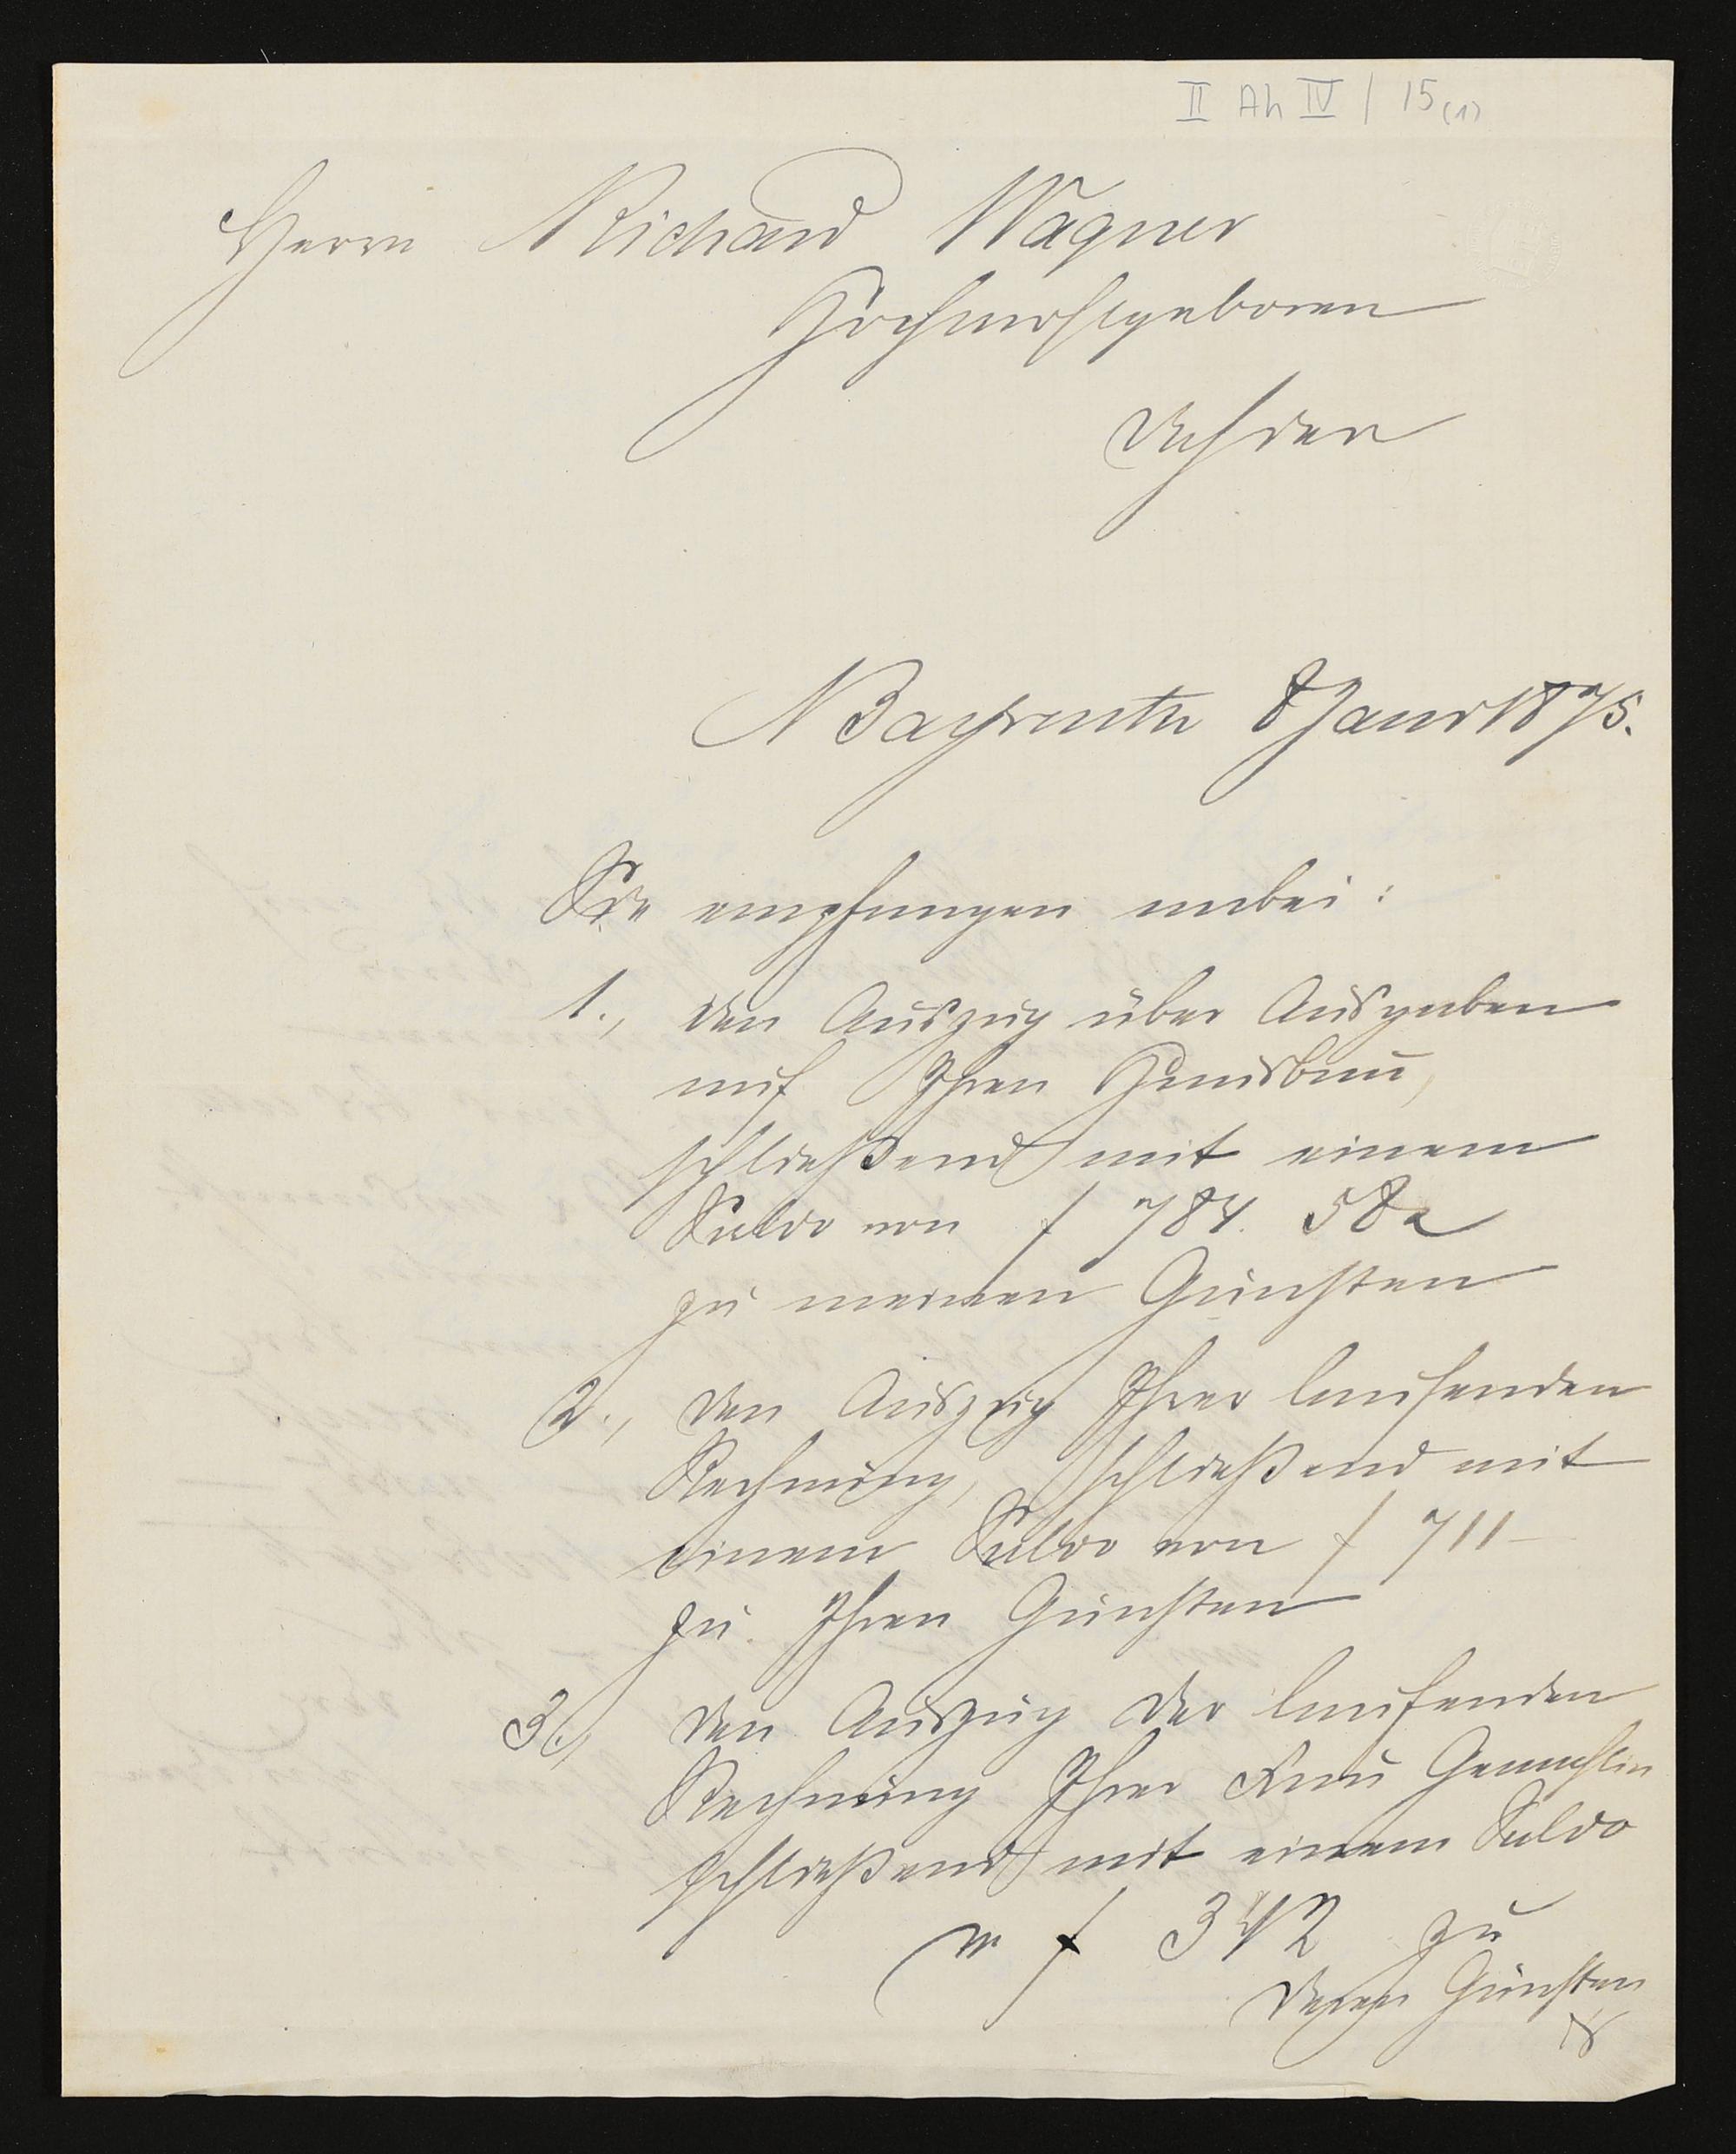 II Ah IV / 15 (1)
Herrn Richard Wagner
Hochwohlgeboren
dahier
Bayreuth 8 Janr 1875.
Sie empfangen anbei:
1., den Auszug über Ausgaben
auf Ihren Hausbau,
schließend mit einem
Saldo von f 784. 58x
zu meinen Gunsten
2., den Auszug Ihrer laufenden
Rechnung, schließend mit
einem Saldo von f 711–
zu Ihren Gunsten
3., den Auszug der laufenden
Rechnung Ihrer Frau Gemahlin
schließend mit einem Saldo
v f 342 zu
deren Gunsten